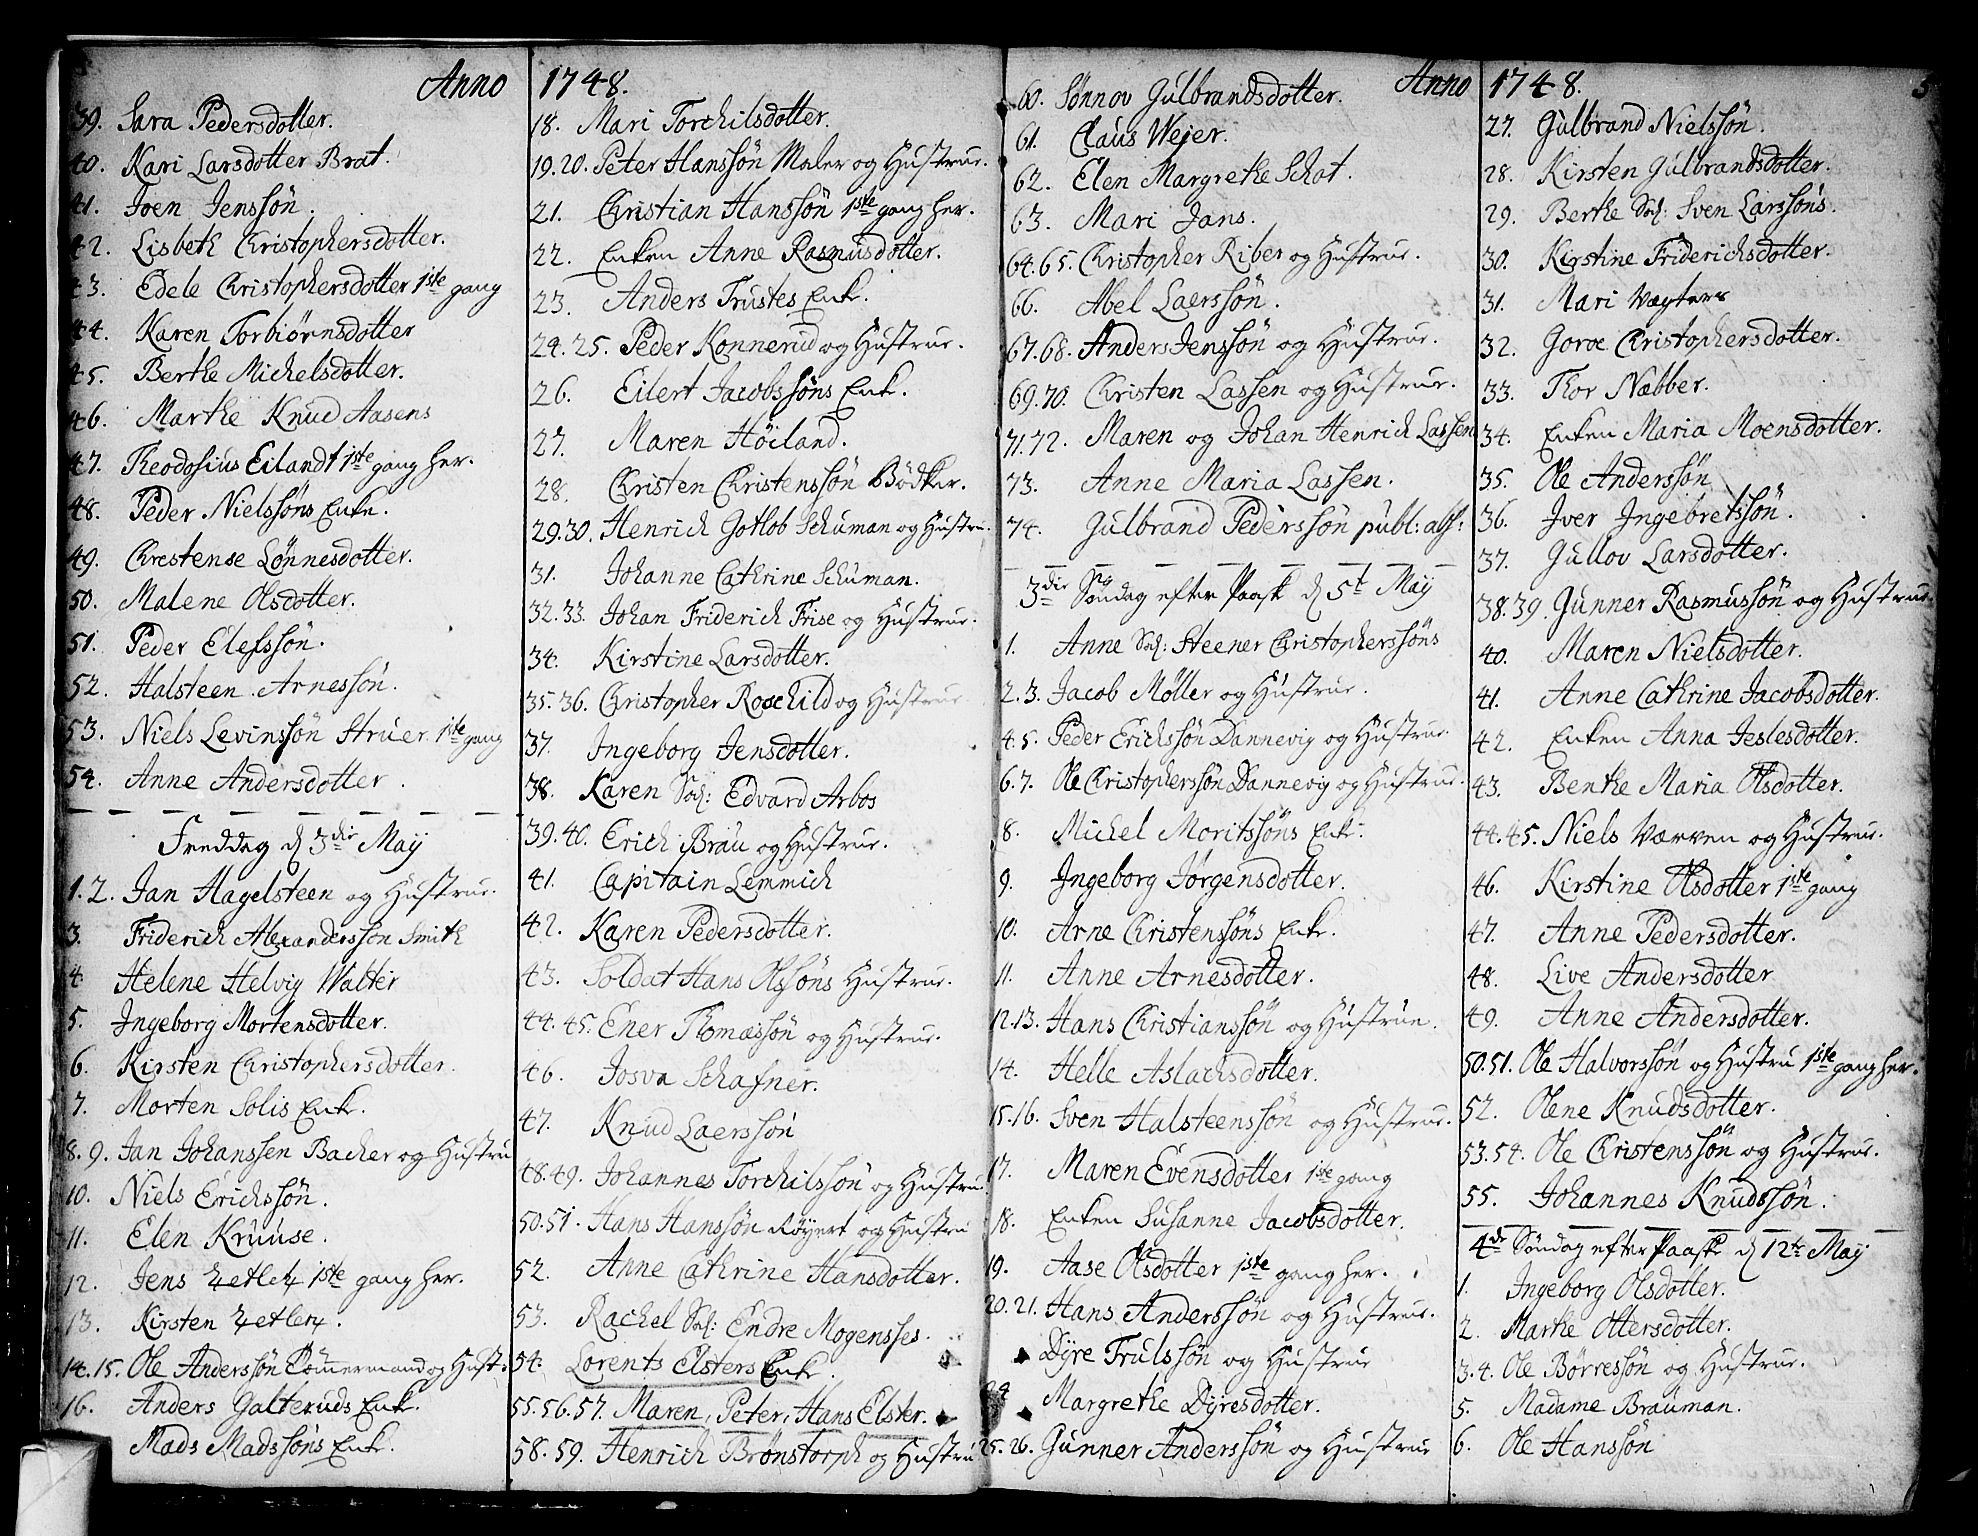 Anno 1748.
39. Sara Pedersdotter.
40. Kari Larsdotter Brat.
41. Joen Jenssön.
42. Lisbeth Christophersdotter.
43. Edele Christophersdotter 1ste gang
44. Karen Torbiørnsdotter
45. Berthe Michelsdotter.
46. Marthe Knud Aasens
47. Theodosius Eilandt 1ste gang her.
48. Peder Nielssöns Enke.
49. Chrestense Lönnesdotter.
50. Malene Olsdotter.
51. Peder Elefssön.
52. Halsteen Arnessön.
53. Niels Levinssön Struer 1ste gang
54. Anne Andersdotter.
Freddag d 3die Maÿ
1.2. Jan Hagelsteen og Hustrue.
3. Friderich Alexanderssön Smith
4. Helene Helvig Walter
5. Ingeborg Mortensdotter.
6. Kirsten Christophersdotter.
7. Morten Solis Enk.
8.9. Jan Johanssen Backer og Hustru
10. Niels Erichssön.
11. Elen Kruuse.
12. Jens Zetlez 1ste gang her.
13. Kirsten Zetlez.
14.15. Ole Anderssön Tömermand og Hust.
16. Anders Galteruds Enk.
Mads Madssöns Enk.
18. Mari Torchilsdotter.
19.20. Peter Hanssön Maler og Hustrue.
21. Christian Hanssön 1ste gang her.
22. Enken Anne Rasmusdotter.
23. Anders Trustes Enk.
24.25. Peder Konnerud og Hustrue.
26. Eilert Jacobssöns Enk.
27. Maren Höiland.
28. Christen Christenssön Bödker.
29.30. Henrich Gotlob Schuman og Hustru.
31. Johanne Cathrine Schuman.
32.33. Johan Friderich Frise og Hustrue.
34. Kirstine Larsdotter.
35.36. Christopher Roschild og Hustrue
37. Ingeborg Jensdotter.
38. Karen Sal: Edvard Arbos
39.40. Erich Brau og Hustrue.
41. Capitain Lemmich
42. Karen Pedersdotter.
43. Soldat Hans Olssöns Hustrue.
44.45. Ener Thomassön og Hustrue.
46. Josva Schafner.
47. Knud Laerssön
48.49. Johannes Torchilssön og Hustru
50.51. Hans Hanssön Röyert og Hustru
52. Anne Cathrine Hansdotter.
53. Rachel Sal: Endre Mogensses.
54. Lorents Elsters Enk.
55.56.57. Maren, Peter, Hans Elster.
58.59. Henrich Brönstorph og Hustru
Anno 1748.
60. Sønnov Gulbrandsdotter.
61. Claus Wejer.
62. Elen Margrethe Schot.
63. Mari Jans.
64.65. Christopher Riber og Hustrue.
66. Abel Laerssön.
67.68. Anders Jenssön og Hustrue.
69.70. Christen Lassen og Hustrue.
71.72. Maren og Johan Henrich Lassen
73. Anne Maria Lassen.
74. Gulbrand Pederssön publ: abs:
3die Søndag efter Paask d 5t Maÿ
1. Anne Sal: Steener Christopherssöns
2.3. Jacob Møller og Hustrue.
4.5. Peder Erichssön Dannevig og Hustrue.
6.7. Ole Christopherssön Dannevig og Hustrue.
8. Michel Moritssöns Enk.
9. Ingeborg Jörgensdotter.
10. Arne Christenssöns Enk.
11. Anne Arnesdotter.
12.13. Hans Christianssön og Hustrue.
14. Helle Aslachsdotter.
15.16. Sven Halsteenssön og Hustrue.
17. Maren Evensdotter 1ste gang
18. Enken Susanne Jacobsdotter.
19. Aase Olsdotter 1ste gang her.
20.21. Hans Anderssön og Hustrue.
Dÿre Trulssön og Hustrue
24 Margrethe Dÿresdotter.
25.26. Gunner Anderssön og Hustrue
27. Gulbrand Nielssön.
28. Kirsten Gulbrandsdotter.
29. Berthe Sal: Sven Larssöns.
30. Kirstine Friderichsdotter.
31. Mari Vægters
32. Goroe Christophersdotter.
33. Thor Næbber.
34. Enken Maria Moensdotter.
35. Ole Anderssön
36. Iver Ingebretssön.
37. Gullov Larsdotter.
38.39. Gunner Rasmussön og Hustrue.
40. Maren Nielsdotter.
41. Anne Cathrine Jacobsdotter.
42. Enken Anna Jeslesdotter.
43. Benthe Maria Olsdotter.
44.45. Niels Værven og Hustrue.
46. Kirstine Olsdotter 1ste gang
47. Anne Pedersdotter.
48. Live Andersdotter
49. Anne Andersdotter.
50.51. Ole Halvorssön og Hustru 1ste gang her.
52. Olene Knudsdotter.
53.54. Ole Christenssön og Hustrue.
55. Johannes Knudssön.
4de Søndag efter Paask d 12te Maÿ
1. Ingeborg Olsdotter.
2. Marthe Ottersdotter.
3.4. Ole Börressön og Hustrue.
5. Madame Brauman.
6. Ole Hanssön